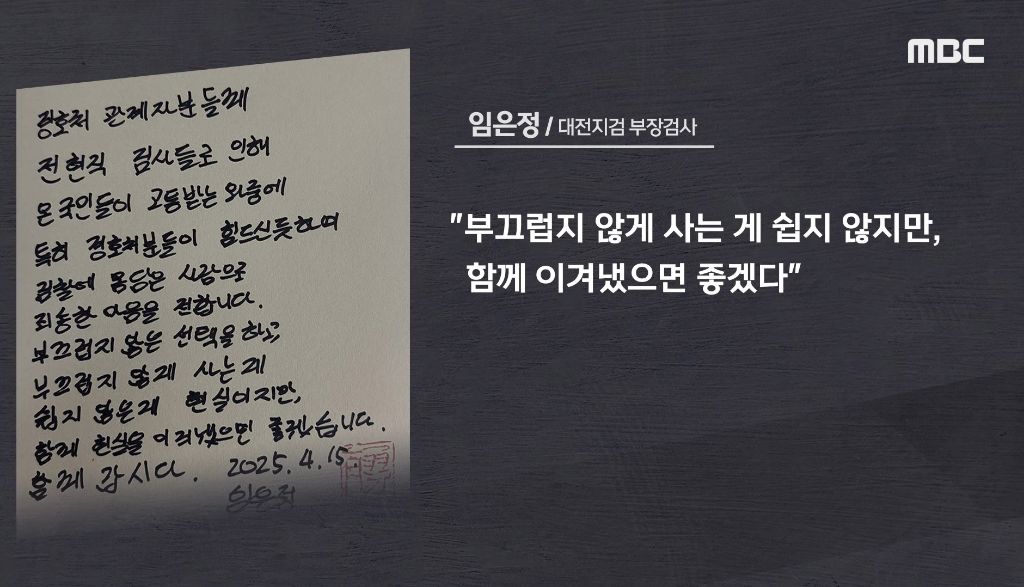 MBC
경호처 관계자분들께
전현직 검사들로 인해
온 국민들이 고통받는 와중에
특히 경호처분들이 힘드신듯하여
검찰에 몸담은 사람으로
죄송한 마음을 전합니다.
부끄럽지 않은 선택을 하고,
부끄럽지 않게 사는게
쉽지 않은게 현실이지만,
함께 현실을 이겨냈으면 좋겠습니다.
함께 갑시다. 2025.4.15.
임은정
임은정 / 대전지검 부장검사
"부끄럽지 않게 사는 게 쉽지 않지만,
함께 이겨냈으면 좋겠다"